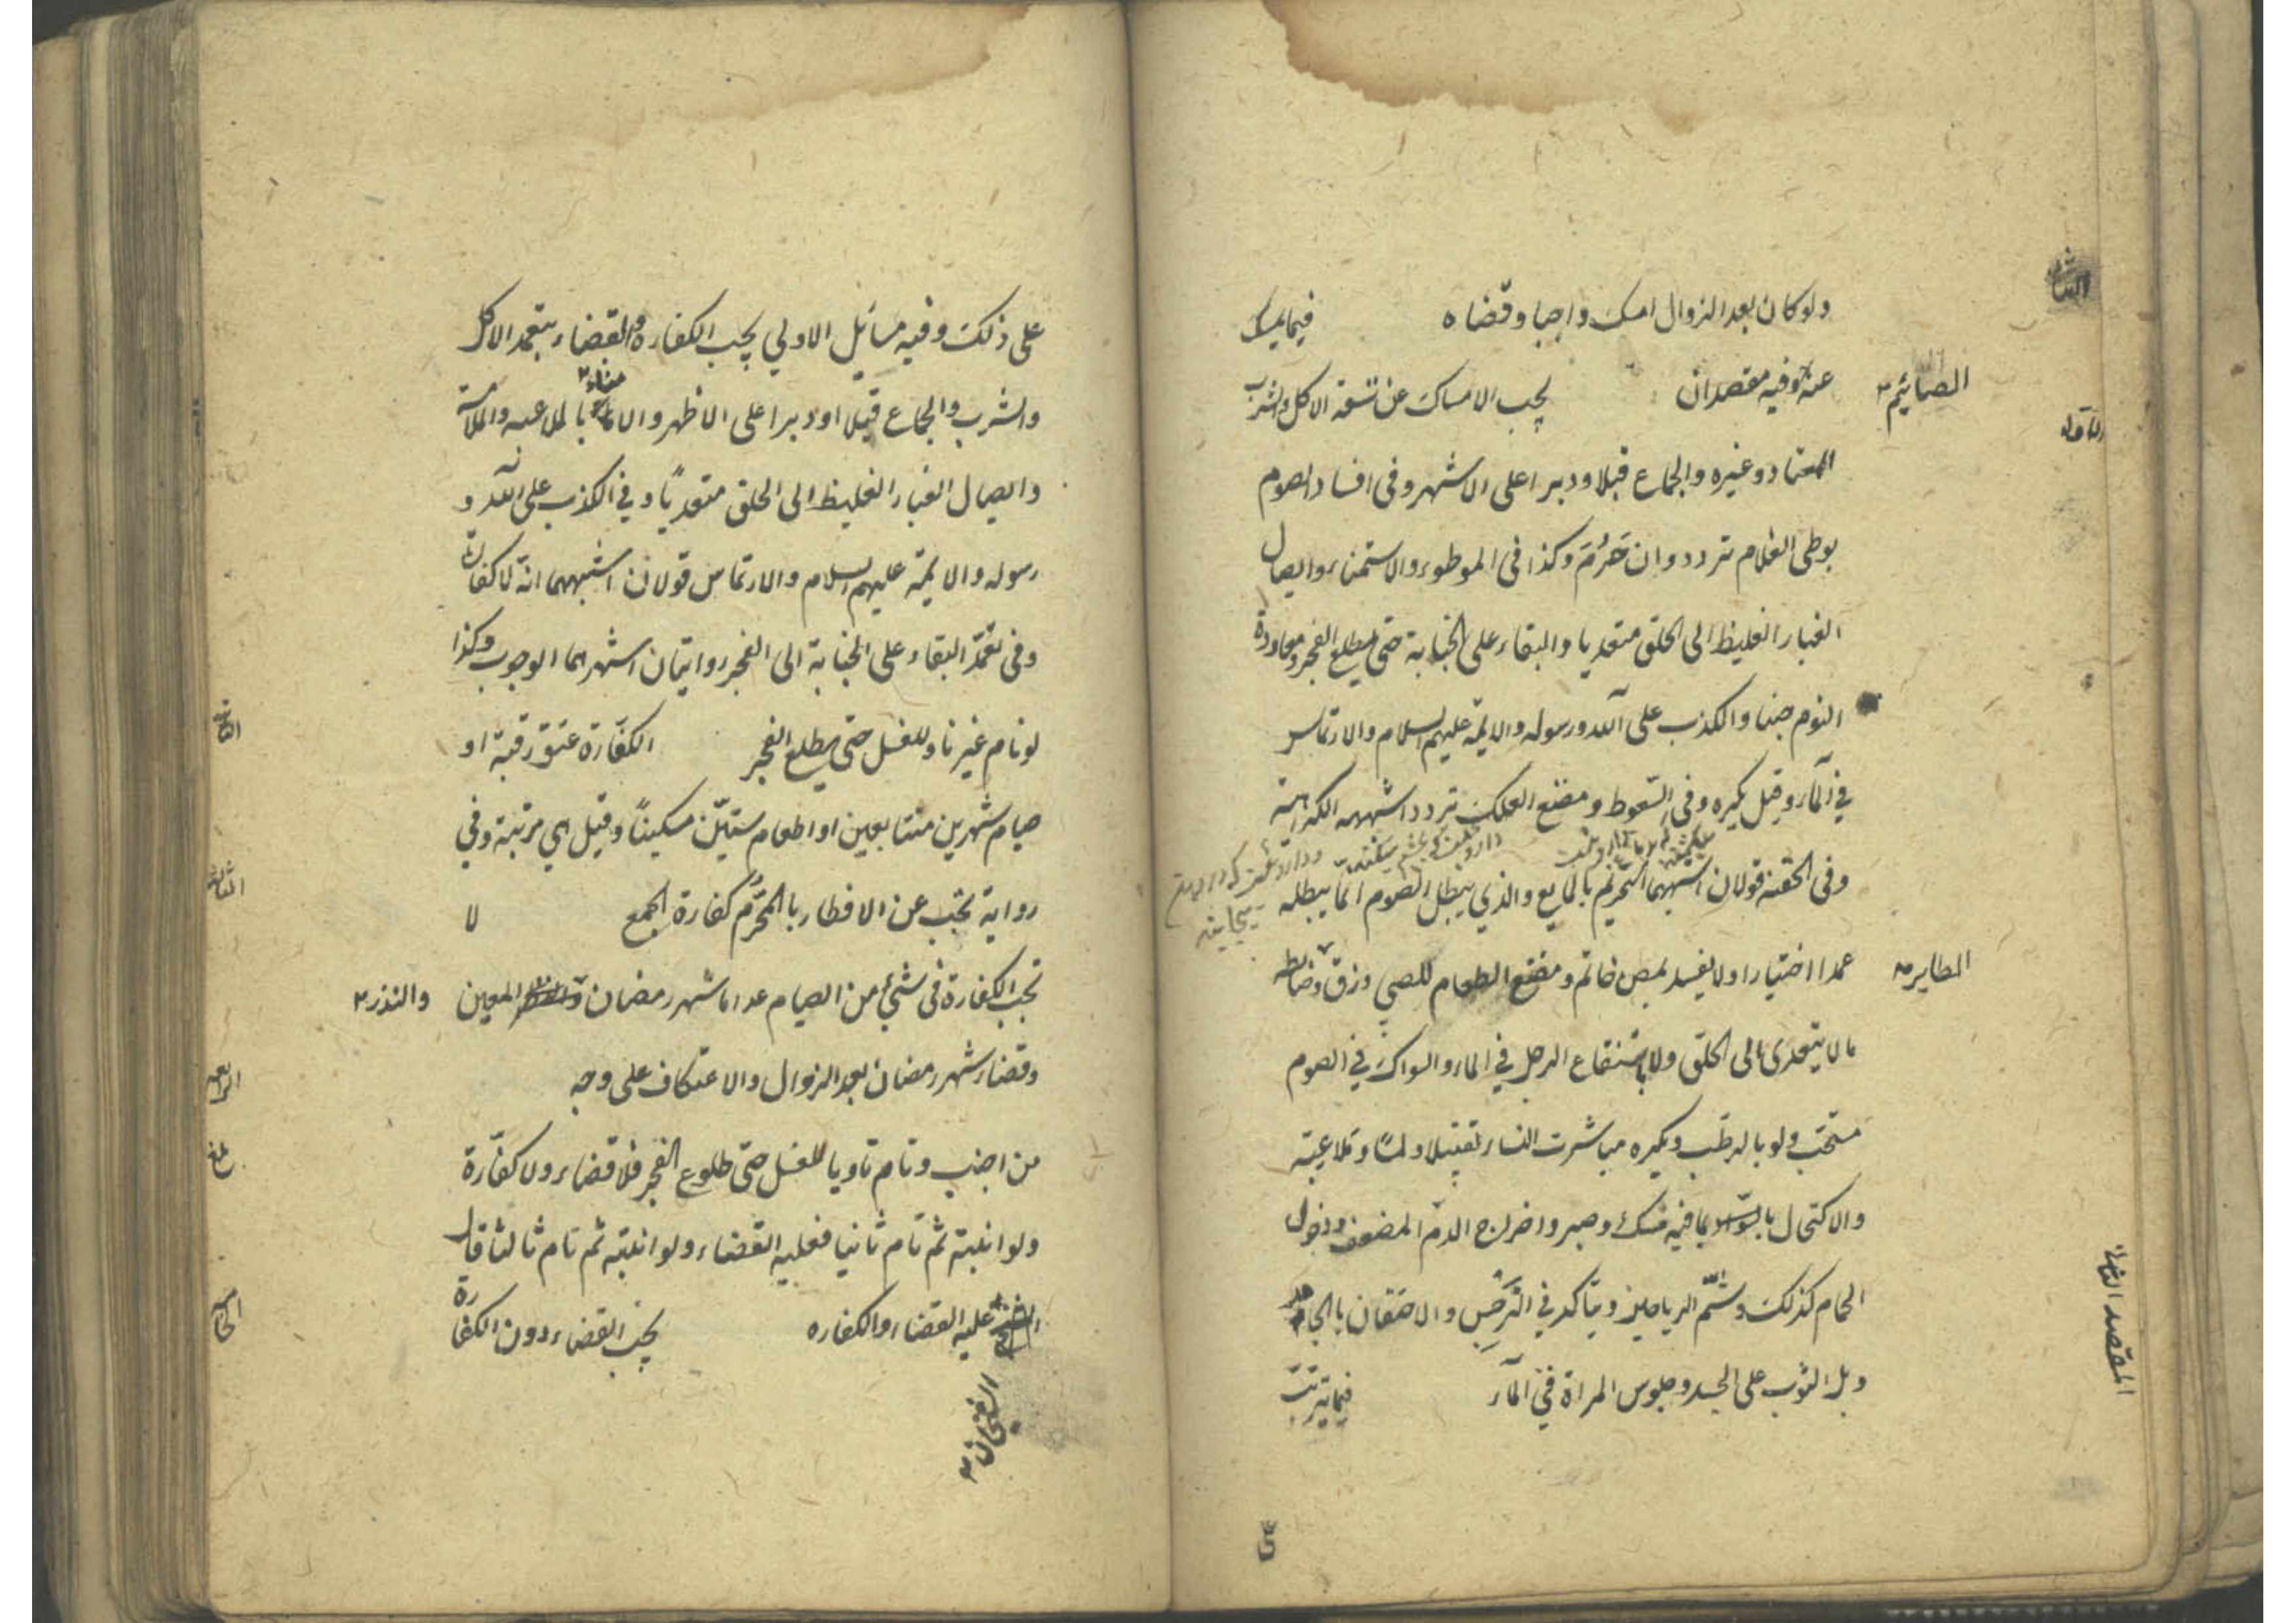 ولو كان بعد الزوال امسك واجبا وقضاه فيما يمسك
عنه وفيه مقصدان يجب الامساك عن تسعة الاكل والشرب
الصائم
المعتاد وغيره والجماع قبلا ودبرا على الاشهر وفى افساد الصوم
بوطى الغلام تردد وان حَرُمَ وكذا فى الموطوء والاستمناء وايصال
الغبار الغليظ الى الحلق متعديا والبقاء على الجنابة حتى يطلع الفجر ومعاودة
النوم جنبا والكذب على الله ورسوله والايمة عليهم السلام والارتماس
في المآء وقيل يكره وفى السّعوط ومضغ العلك تردد اشبهه الكراهية
وفى الحقنة قولان اشبههما التحريم بالمايع والذي يبطل الصوم انما يبطله
عمدا اختيارا ولا يفسد بمص خاتم ومضغ الطعام للصبي وزق وضابطه
الطاير
ما لا يتعدى الى الحلق ولا باستنقاع الرجل في الماء والسواك في الصوم
مستحب ولو بالرطب ويكره مباشرت النساء تقبيلا ولمسًا وملاعبة
والاكتحال بما فيه مسك وصبر واخراج الدم المضعف ودخول
الحمام كذلك وشمّ الرياحين ويتأكد في النرجس والاحتقان بالجامد
وبل الثوب على الجسد وجلوس المراة في المآء فيما يترتب
المقصد الثانى
على ذلك وفيه مسائل الاولي يجب الكفارة والقضاء بتعمد الاكل
والشرب والجماع قبلا او دبرا على الاظهر والامناء بالملاعبه والملامسة
وايصال الغبار الغليظ الى الحلق متعديًا وفي الكذب على الله و
رسوله والايمّة عليهم السلام والارتماس قولان اشبههما انّه لا كفارة
وفى تعمّد البقاء على الجنابة الى الفجر روايتان اشهرهما الوجوب وكذا
لو نام غير ناو للغسل حتى يطلع الفجر الكفّارة عتق رقبة او
الثانية
صيام شهرين متتابعين او اطعام ستيّن مسكينًا وقيل هي مرتبة وفي
رواية تجب عن الافطار بالمحرَّم كفارة الجمع لا
الثالثة
تجب الكفارة فى شيء من الصيام عدا ما شهر رمضان المعين والنذر
وقضاء شهر رمضان بعد الزوال والاعتكاف على وجه
الرابعة
من اجنب ونام ناويا للغسل حتى طلوع الفجر فلا قضاء ولا كفّارة
ولو انتبه ثم نام ثانيا فعليه القضاء ولو انتبه ثم نام ثالثا قال
عليه القضاء والكفاره يجب القضاء دون الكفارة
الخامسة
الشيخان